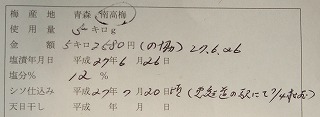 梅産地 青森 南高梅
使用量 5キロg
金額 5キロ2680円(の梅) 27.6.26
塩漬年月日 平成27年6月26日
塩分% 12%
シソ仕込み 平成27年7月20日頃(道の駅にて)
天日干し 平成 年 月 日